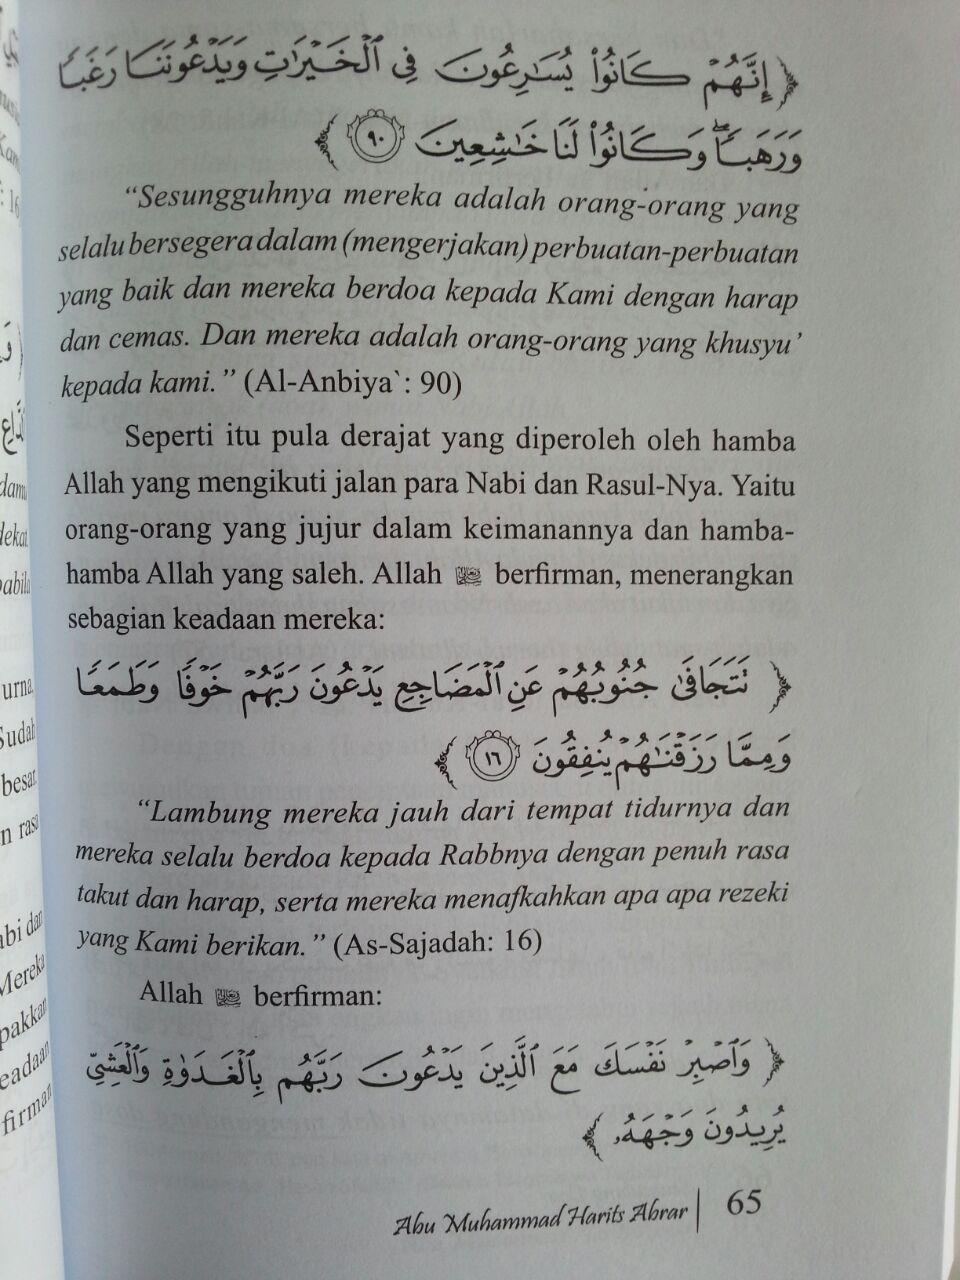 ﴿ إِنَّهُمْ كَانُوا۟ يُسَٰرِعُونَ فِى ٱلْخَيْرَٰتِ وَيَدْعُونَنَا رَغَبًا
وَرَهَبًا ۖ وَكَانُوا۟ لَنَا خَٰشِعِينَ ٩٠ ﴾
“Sesungguhnya mereka adalah orang-orang yang
selalu bersegera dalam (mengerjakan) perbuatan-perbuatan
yang baik dan mereka berdoa kepada Kami dengan harap
dan cemas. Dan mereka adalah orang-orang yang khusyu’
kepada kami.” (Al-Anbiya`: 90)
Seperti itu pula derajat yang diperoleh oleh hamba
Allah yang mengikuti jalan para Nabi dan Rasul-Nya. Yaitu
orang-orang yang jujur dalam keimanannya dan hamba-
hamba Allah yang saleh. Allah berfirman, menerangkan
sebagian keadaan mereka:
﴿ تَتَجَافَىٰ جُنُوبُهُمْ عَنِ ٱلْمَضَاجِعِ يَدْعُونَ رَبَّهُمْ خَوْفًا وَطَمَعًا
وَمِمَّا رَزَقْنَٰهُمْ يُنفِقُونَ ١٦ ﴾
“Lambung mereka jauh dari tempat tidurnya dan
mereka selalu berdoa kepada Rabbnya dengan penuh rasa
takut dan harap, serta mereka menafkahkan apa apa rezeki
yang Kami berikan.” (As-Sajadah: 16)
Allah berfirman:
﴿ وَٱصْبِرْ نَفْسَكَ مَعَ ٱلَّذِينَ يَدْعُونَ رَبَّهُم بِٱلْغَدَوٰةِ وَٱلْعَشِىِّ
يُرِيدُونَ وَجْهَهُۥ ﴾
Abu Muhammad Harits Abrar | 65